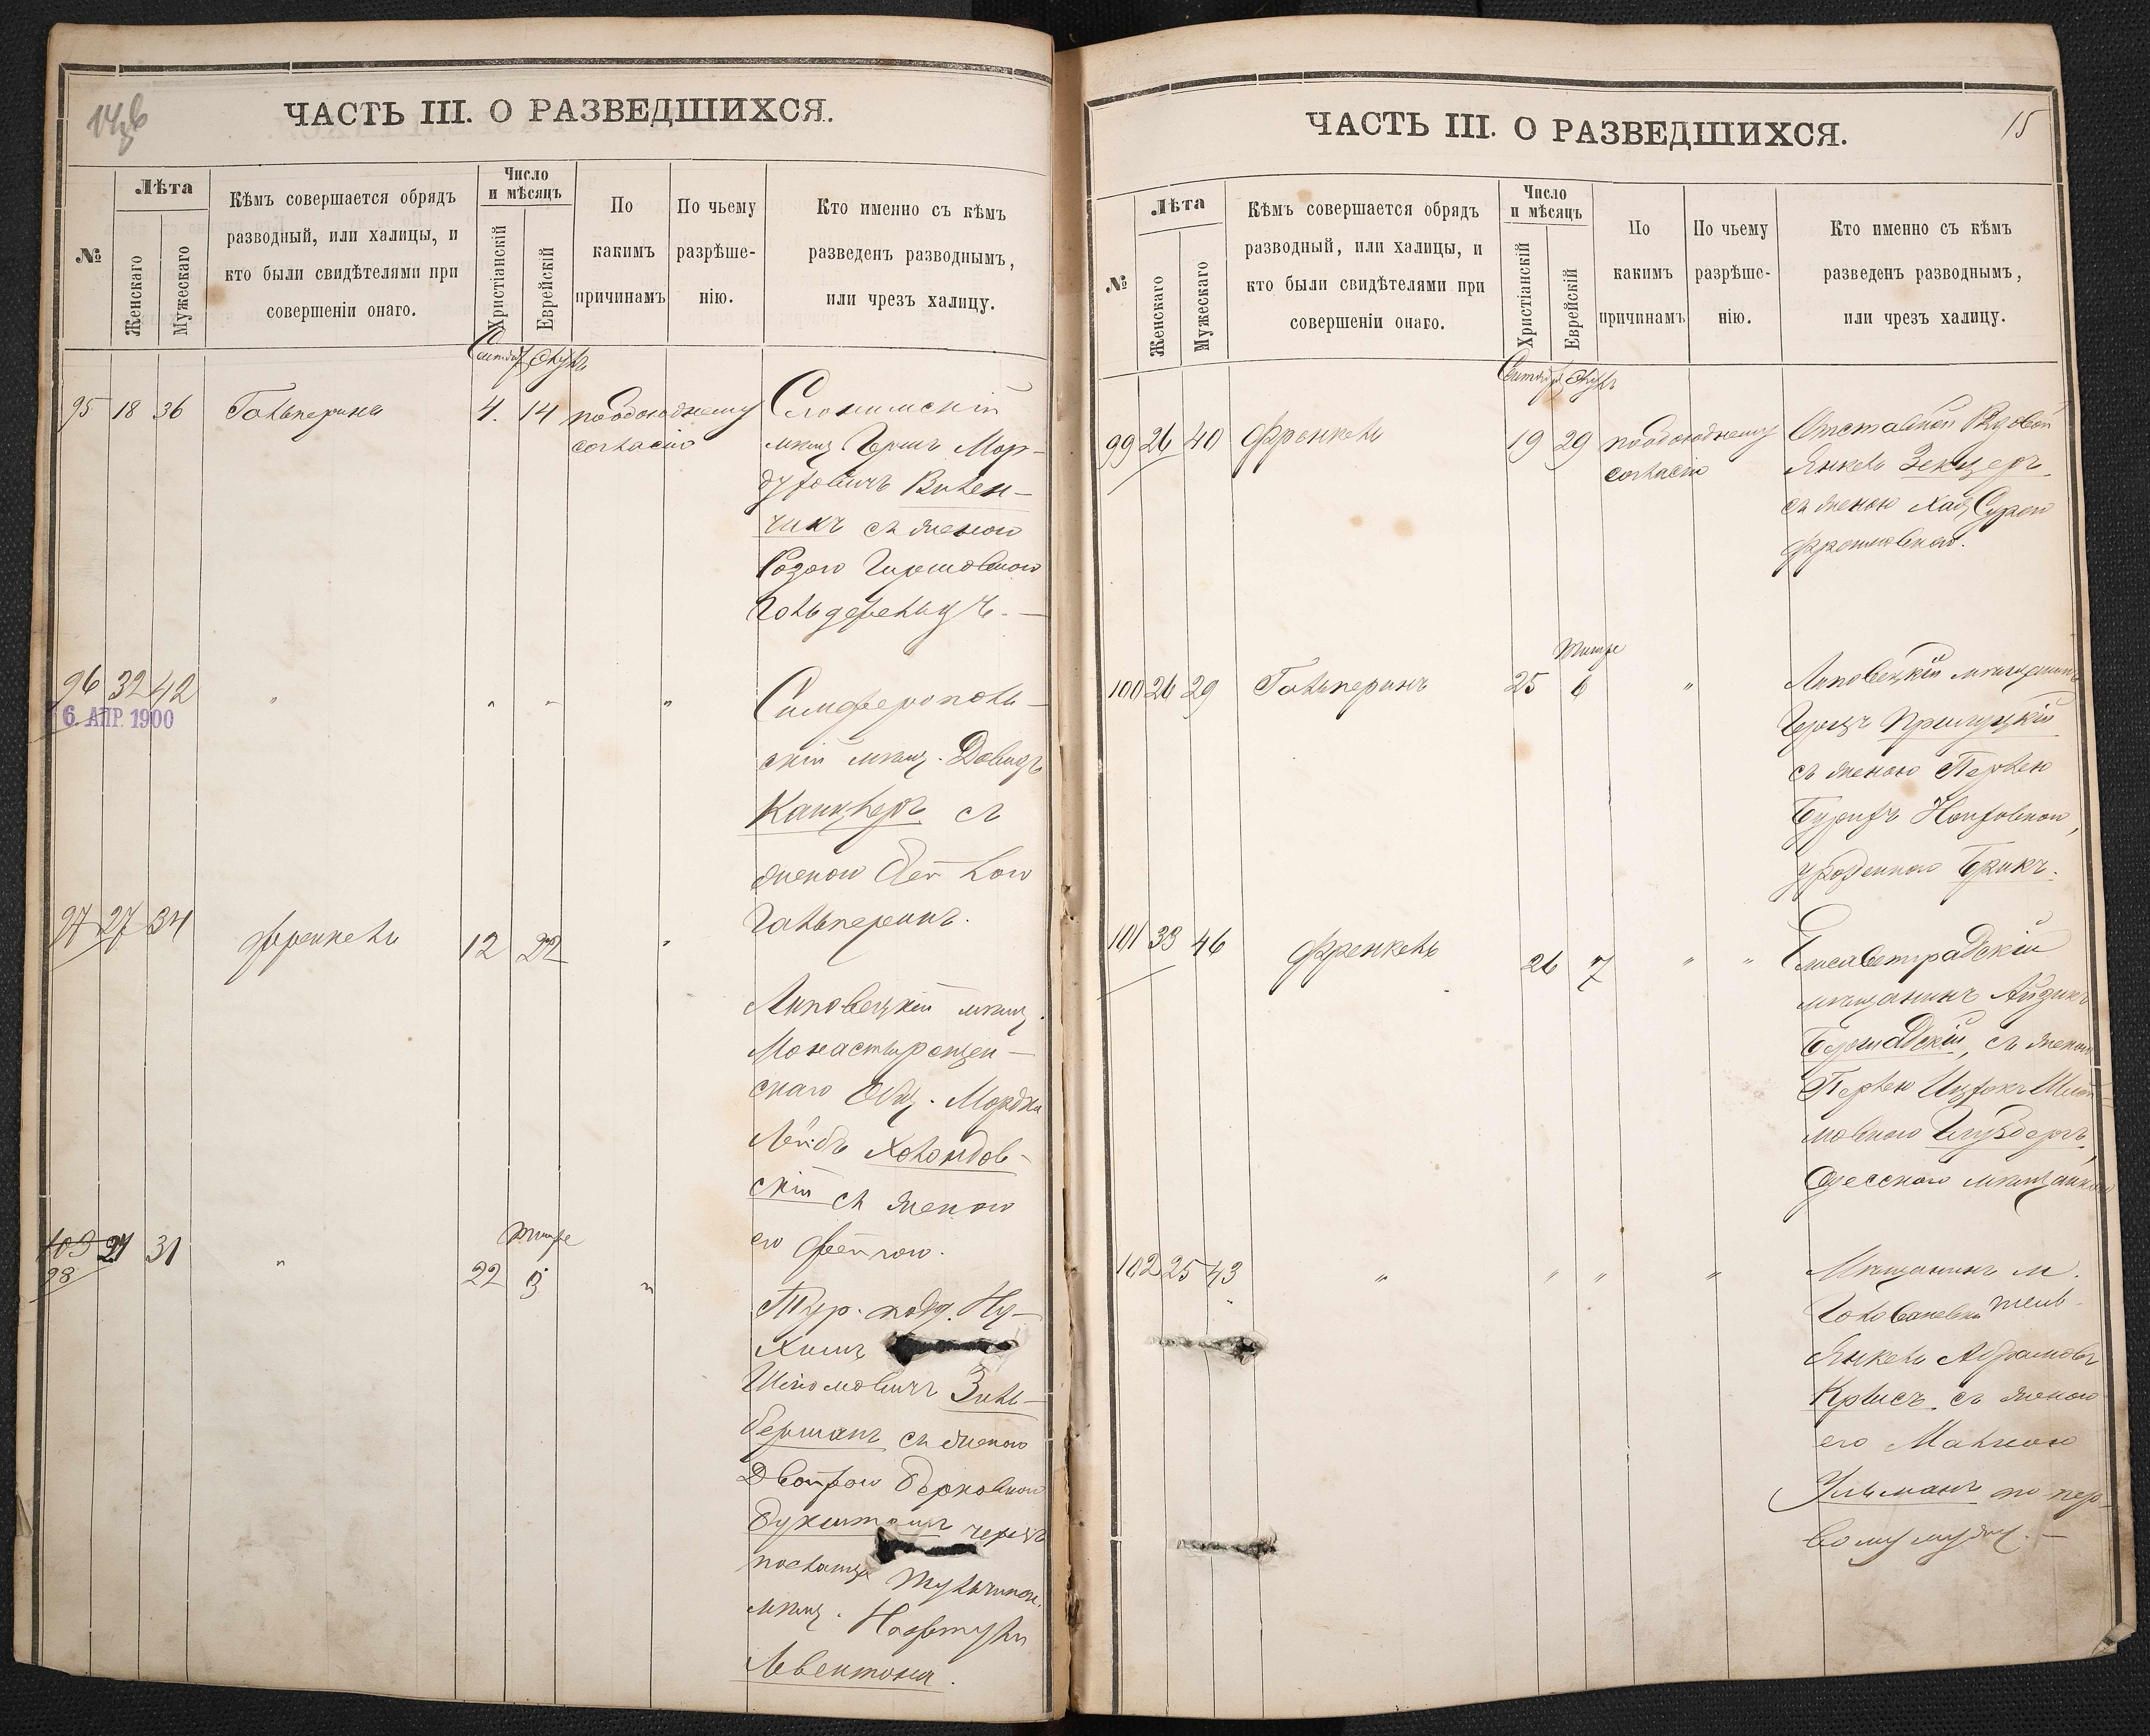 ЧАСТЬ III. О РАЗВЕДШИХСЯ.
№
Лѣта
Женскаго
Мужескаго
Кѣмъ совершается обрядъ
разводный, или халицы, и
кто были свидѣтелями при
совершеніи онаго.
Число
и мѣсяцъ
Христіанскій
Еврейскій
По
какимъ
причинамъ
По чьему
разрѣше-
нію.
Кто именно съ кѣмъ
разведенъ разводнымъ,
или чрезъ халицу.
95 18 36 Гальперинъ 4. 14 по обоюдному Слонимскій
согласію мѣщ. Гершъ Мор-
духовичъ Вилен-
чикъ съ женою
Розою Гиршовною
96 32 42 " " " " Симферополь-
6. АПР. 1900
скій мѣщ. Довидъ
Канцлеръ съ
женою
Гальперинъ.
97 27 34 Френкель 12 22 "
Липовецкій мѣщ.
Монастырищен-
скаго Общ. Мордко
Лейбъ Холодов-
скій съ женою
его Фейгою.
Тишре
98 31 " 22 "
Тур. подд. Ну-
химъ
Шлiомовичъ Зиль-
берманъ съ женою
Двойрою Берковною
чрезъ
посланца Тульчинск.
мѣщ. Нафтулы
Левентона.
ЧАСТЬ III. О РАЗВЕДШИХСЯ.
15
№
Лѣта
Женскаго
Мужескаго
Кѣмъ совершается обрядъ
разводный, или халицы, и
кто были свидѣтелями при
совершеніи онаго.
Число
и мѣсяцъ
Христіанскій
Еврейскій
По
какимъ
причинамъ
По чьему
разрѣше-
нію.
Кто именно съ кѣмъ
разведенъ разводнымъ,
или чрезъ халицу.
99 26 40 Френкель 19 29 по обоюдному Отставной Рядовой
согласію Янкель Зекцеръ
съ женою Хаей Сурою
Тишре
100 26 29 Гальперинъ 25 6 " Липовецкій мѣщанинъ
Герцъ Прилуцкій
съ женою Перлею
урожденною Брикъ.
101 33 46 Френкель 26 7 " " Елисаветградскій
мѣщанинъ Айзикъ
Бершадскій, съ женою
Перлею Ицхокъ Шлiо-
мовною
Одесскою мѣщанкою
102 25 43 " " " " Мѣщанинъ м.
Голованевки
Янкель Абрамовъ
Крысъ съ женою
его Малкою
Ульманъ по пер-
вому мужу. —